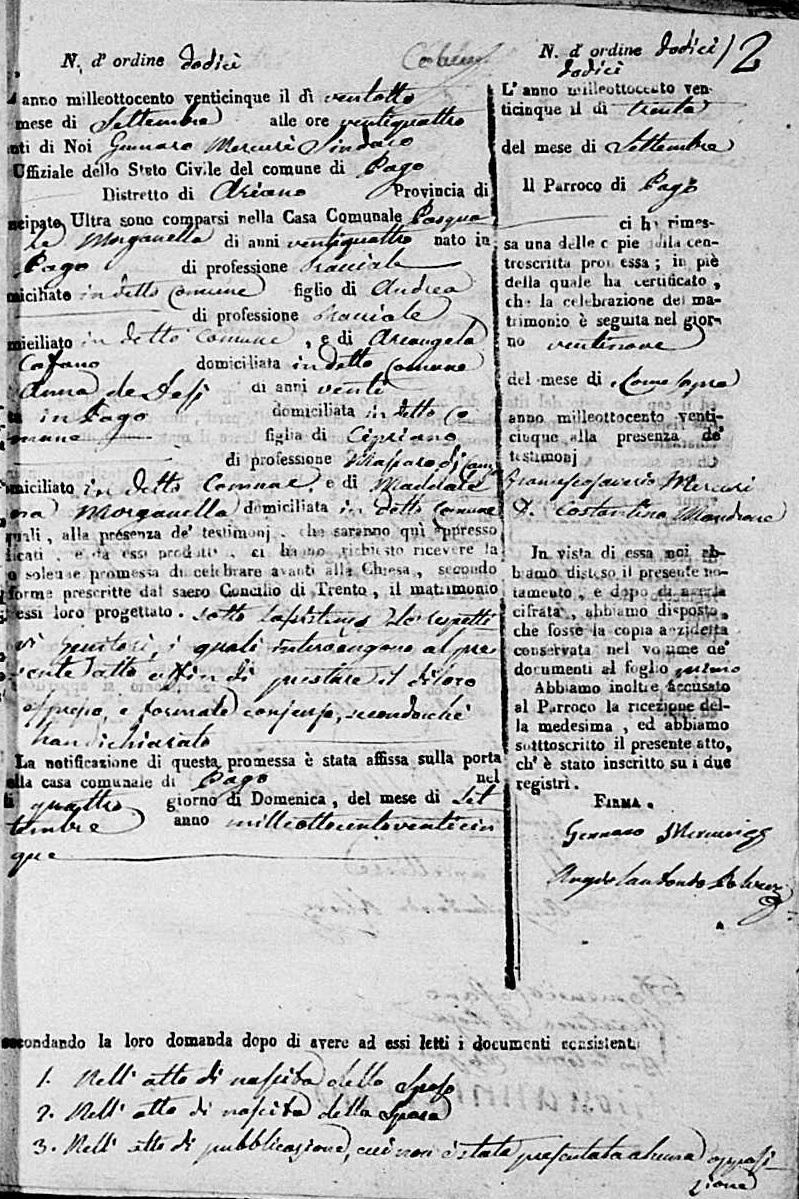 N. d' ordine dodici
L' anno milleottocento venticinque il dì ventotto
mese di Settembre alle ore ventiquattro
nti di Noi Gennaro Mercuri Sindaco
Uffiziale dello Stato Civile del comune di Pago
Distretto di Ariano Provincia di
ncipato Ultra sono comparsi nella Casa Comunale Pasqua
le Morganella di anni ventiquattro nato in
Pago di professione Bracciale
miciliato in detto Comune figlio di Andrea
di professione Bracciale
miciliato in detto Comune , e di Arcangela
Cafano domiciliata in detto Comune
Anna de Lesi di anni venti
ta in Pago domiciliata in detto Co
mune figlia di Cipriano
di professione di
miciliato in detto Comune e di Maddale
na Morganella domiciliata in detto Comune
quali , alla presenza de' testimonj , che saranno quì appresso
ficati , e da essi prodotti , ci hanno richiesto ricevere la
o solenne promessa di celebrare avanti alla Chiesa , secondo
forme prescritte dal sacro Concilio di Trento , il matrimonio
essi loro progettato . sotto l'assistenza de' rispetti
vi Genitori, i quali intervengono al pre
sente atto affin di prestare il di loro
espresso, e formale consenso, secondochè
han dichiarato
La notificazione di questa promessa è stata affissa sulla porta
ella casa comunale di Pago nel
li quattro giorno di Domenica , del mese di Set
tembre anno milleottocentoventicin
que
N. d' ordine dodici 12
dodici
L' anno milleottocento ven-
ticinque il dì trenta
del mese di Settembre
Il Parroco di Pago
ci ha rimes-
sa una delle copie della con-
troscritta promessa ; in piè
della quale ha certificato ,
che la celebrazione del ma-
trimonio è seguita nel gior-
no ventinove
del mese di Come sopra
anno milleottocento venti-
cinque alla presenza de'
testimonj
Francescosaverio Mercuri
D. Costantino Mandrone
In vista di essa noi ab-
biamo disteso il presente no-
tamento , e dopo di averla
cifrata , abbiamo disposto,
che fosse la copia anzidetta
conservata nel volume de'
documenti al foglio primo
Abbiamo inoltre accusato
al Parroco la ricezione del-
la medesima , ed abbiamo
sotttoscritto il presente atto,
ch' è stato inscritto su i due
registri .
FIRMA .
Gennaro Mercuri
secondando la loro domanda dopo di avere ad essi letti i documenti consistenti
1. Nell' atto di nascita dello Sposo
2. Nell' atto di nascita della Sposa
3. Nell' atto di pubblicazione, cui non è stata presentata alcuna opposi
zione